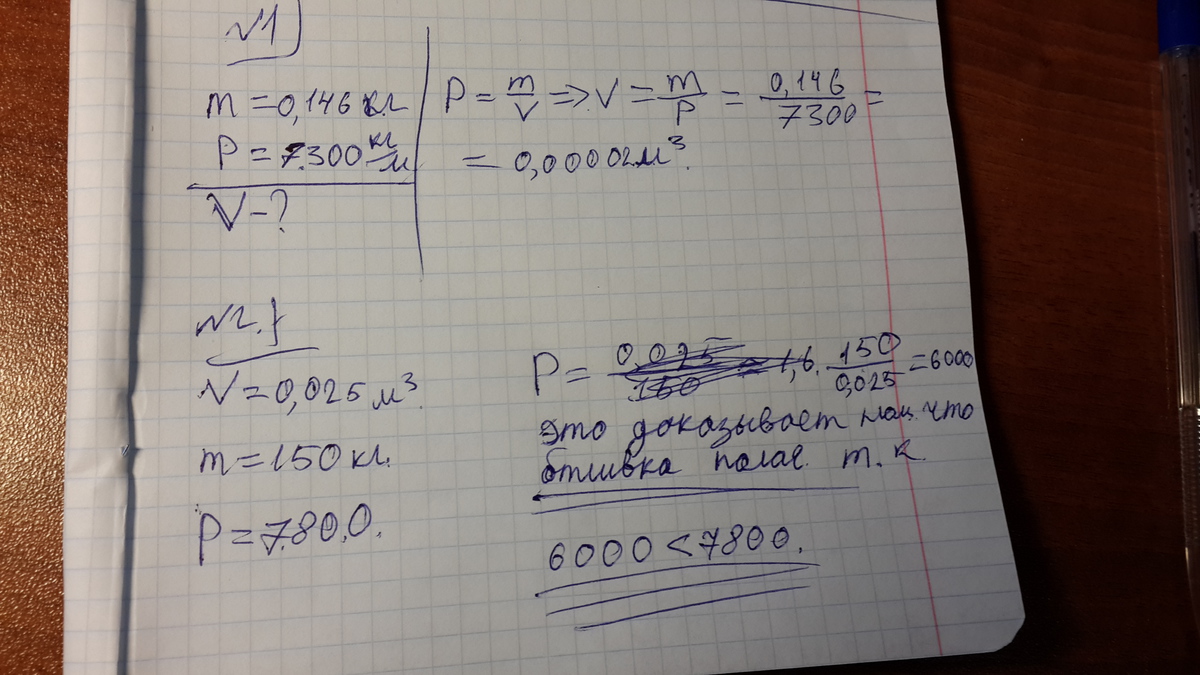 №1)
m = 0,146 кг
P = 7300 кг/м
V - ?
P = m/V => V = m/P = 0,146/7300 =
= 0,00002 м³.
№2.}
V = 0,025 м³.
m = 150 кг.
P = 7.80.0.
P = 0,025/150 = 1,6. 150/0,025 = 6000
это доказывает нам. что
отливка полае. т. к.
6000 < 7800.